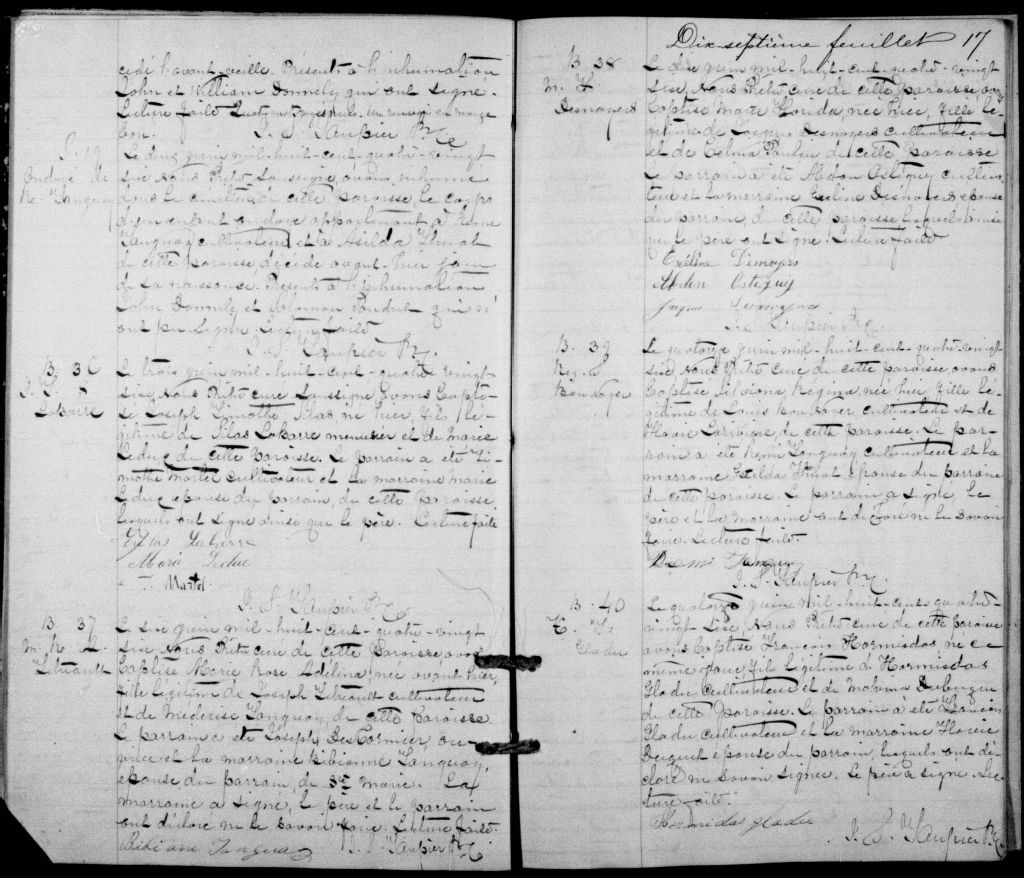 cédé l'avant-veille. Présents à l'inhumation
John et William Donnely qui ont signé.
Lecture faite. Un renvoi en marge
bon. J. S. Taupier Ptre
S. 19
Ondoyé de
R. Tanguay
Le deux juin mil-huit-cent-quatre-vingt
sise Nous Prêtre soussigné, avons inhumé
dans le cimetière de cette paroisse, le corps
d'un enfant ondoyé appartenant à Rémi
Tanguay cultivateur et à Asilda Thuot
de cette paroisse décédé avant-hier jour
de sa naissance. Présents à l'inhumation
John Donnely et Solomon qui n'
ont pu signer. Lecture faite
J. S. Taupier Ptr.
B. 36
J. T. S.
Labarre
Le trois juin mil-huit-cent-quatre-vingt
sise Nous Prêtre curé soussigné avons bapti-
sé Joseph Timothé Silas né hier, fils lé-
gitime de Silas Labarre menuisier et de Marie
Leduc de cette Paroisse. Le parrain a été Ti-
mothé Martel cultivateur et la marraine Marie
Leduc épouse du parrain, de cette Paroisse
lesquels ont signé ainsi que le père. Lecture faite
Silas Labarre
Marie Leduc
T. Martel
J. S. Taupier Ptre
B. 37
M. R. A.
Létriault
Le sise juin mil-huit-cent-quatre-vingt
sise Nous Prêtre curé de cette Paroisse avons
baptisé Marie Rose Adélina, née avant hier,
fille légitime de Joseph Létriault cultivateur
et de Méderise Tanguay, de cette Paroisse.
Le parrain a été Joseph DesCormier
et la marraine Bibianne Tanguay,
épouse du parrain, de Ste Marie. La
marraine a signé, le père et le parrain
ont déclaré ne le savoir faire. Lecture faite.
Bibiane Tanguay J. S. Taupier Ptre
Dix-septième feuillet 17
B. 38
M. F.
Desnoyers
Le dix juin mil-huit-cent-quatre-vingt
sise, Nous Prêtre curé de cette paroisse, avons
baptisé Marie Florida née hier, fille lé-
gitime de Jacques Desnoyers cultivateur
et de Celma Poulin de cette Paroisse
Le parrain a été Moïse Ostiguy cultiva-
teur et la marraine Eveline Desnoyers épouse
du parrain, de cette paroisse lesquels ainsi
que le père ont signé. Lecture faite
Eveline Demoyers
Ostiguy
J. S. Taupier Ptre
B. 39
Reg. S.
Bonvoyer
Le quatorze juin mil-huit-cent-quatre-vingt
sise Nous Prêtre curé de cette paroisse, avons
baptisé Silviona Regina, née hier fille lé-
gitime de Louis Bonvoyer cultivateur et de
Flavie Larivière, de cette paroisse. Le par-
rain a été Rémi Tanguay cultivateur et la
marraine Exilda Thuot épouse du parrain
de cette paroisse. Le parrain a signé, le
père et la marraine ont déclaré ne le savoir
faire. Lecture faite.
Tanguay
J. S. Taupier Ptre
B. 40
F. H.
Gladu
Le quatorze juin mil-huit-cent-quatre-
vingt-sise Nous Prêtre curé de cette Paroisse
avons baptisé François Hormisdas né ce
même jour, fils légitime d'Hormisdas
Gladu cultivateur et de Malvina Dubuque
de cette Paroisse. Le parrain a été François
Gladu cultivateur et la marraine Flavie
épouse du parrain, lesquels ont dé-
claré ne savoir signer. Le père a signé. Lec-
ture faite.
Hormidas gladu
J. S. Taupier Ptre